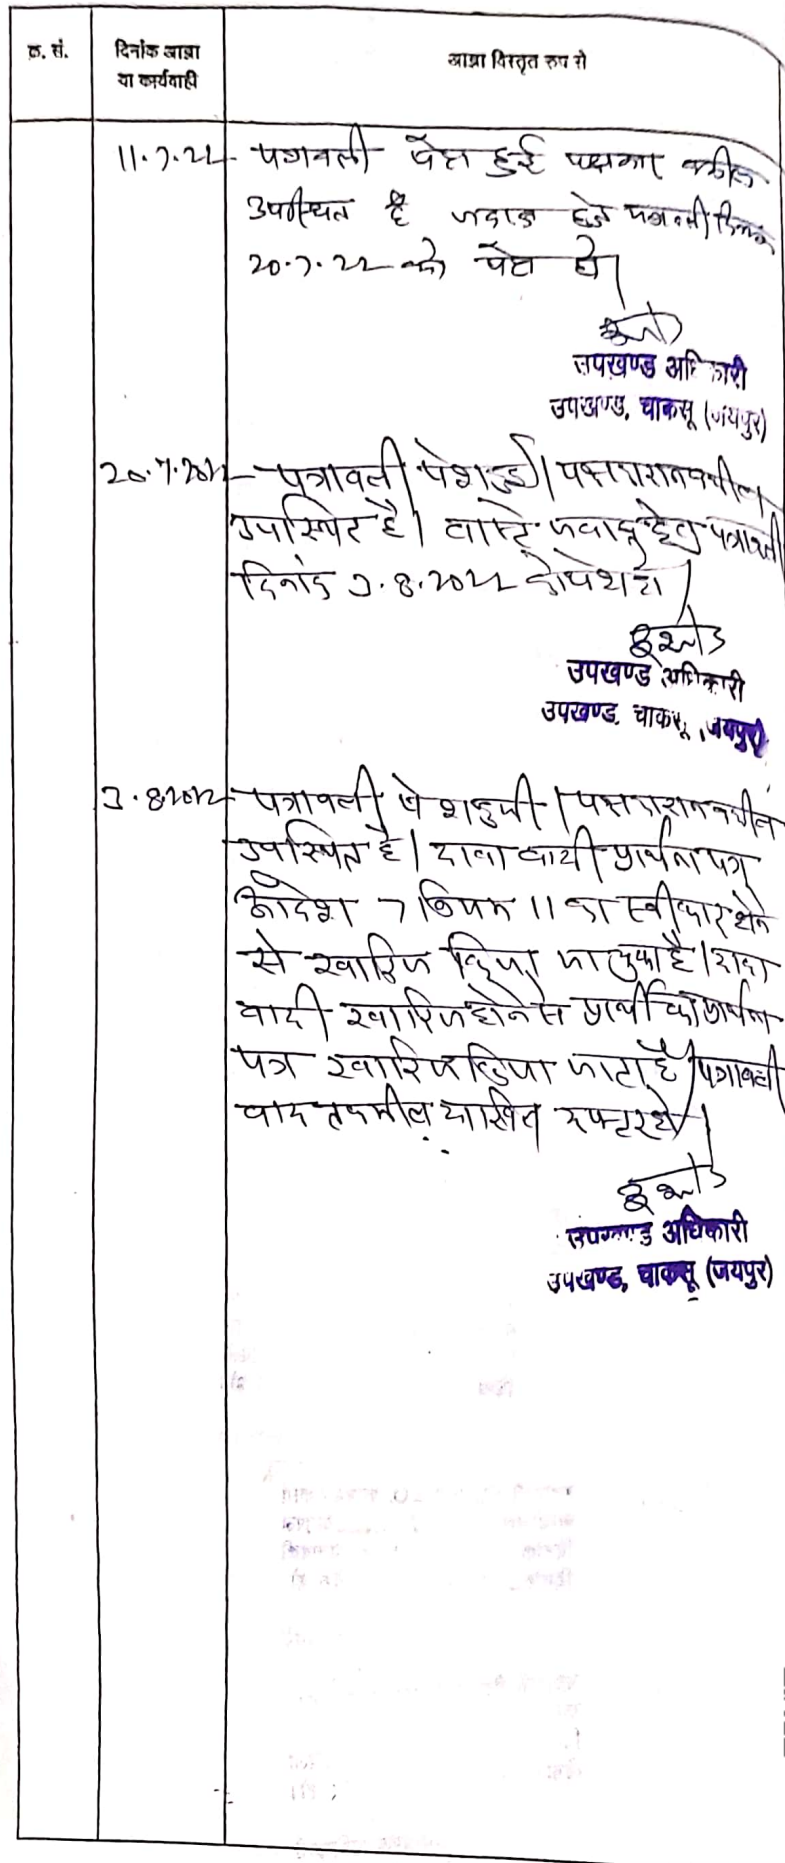 क्र. सं.
दिनांक आज्ञा
या कार्यवाही
आज्ञा विस्तृत रुप से
11.7.22 पत्रावली पेश हुई पक्षकार वकील
उपस्थित है जवाब हेतु पत्रावली दिनांक
20.7.22 को पेश हो।
उपखण्ड अधिकारी
उपखण्ड, चाकसू (जयपुर)
20.7.2022 पत्रावली पेश हुई। पक्षकारान वकील
उपस्थित है। वास्ते जवाब हेतु पत्रावली
दिनांक 3.8.2022 को पेश हो।
उपखण्ड अधिकारी
उपखण्ड, चाकसू (जयपुर)
3.8.2022 पत्रावली पेश हुयी। पक्षकारान वकील
उपस्थित है। दावा वादी प्रार्थना पत्र
आदेश 7 नियम 11 का स्वीकार होने
से खारिज किया जा चुका है। दावा
वादी खारिज होने से प्रार्थी का प्रार्थना
पत्र खारिज किया जाता है। पत्रावली
बाद तकमील दाखिल दफ्तर हो।
उपखण्ड अधिकारी
उपखण्ड, चाकसू (जयपुर)